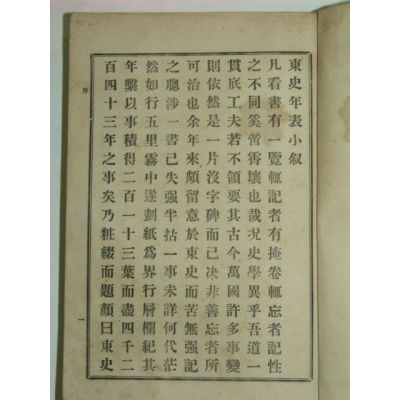 東史年表小叙
凡看書有一覽輒記者有掩卷輒忘者記性
之不同奚啻霄壤也哉況史學異乎吾道一
貫底工夫若不領要其古今萬國許多事變
則依然是一片沒字碑而已决非善忘者所
可治也余年來頗留意於東史而苦無强記
之聰涉一書已失强半拈一事未詳何代茫
然如行五里霧中遂劃紙爲界行層欄紀其
年繫以事積得二百一十三葉而盡四千二
百四十三年之事矣乃粧綴而題顏曰東史
序
一